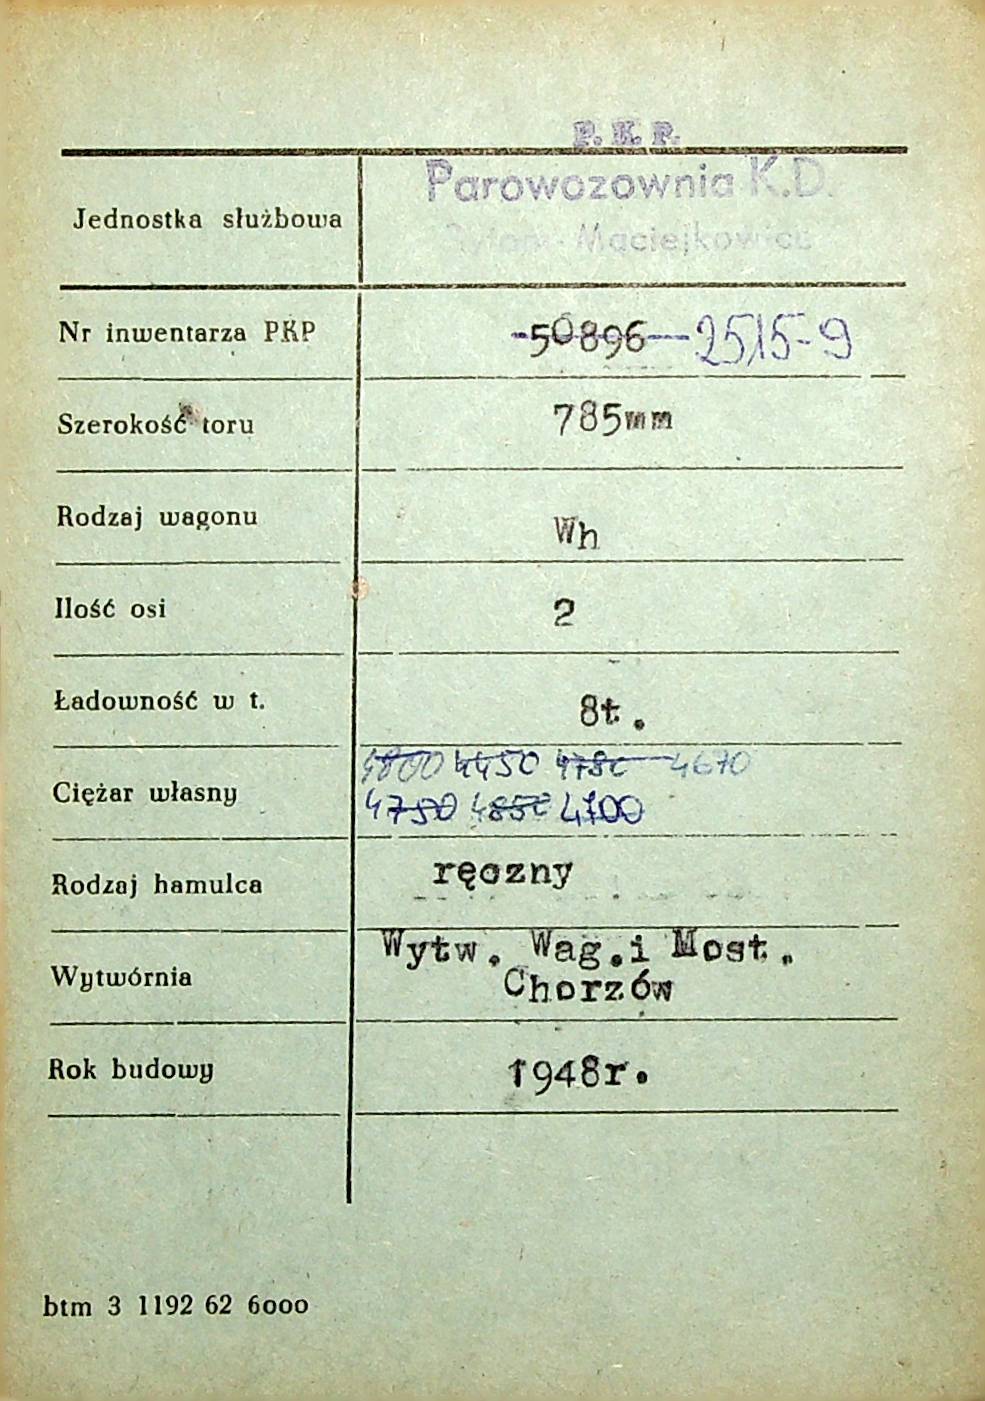 P. K. P.
Parowozownia K.D.
Jednostka służbowa
Maciejkowice
Nr inwentarza PKP 50896 2515-9
Szerokość toru 785mm
Rodzaj wagonu Wh
Ilość osi 2
Ładowność w t. 8t.
4800 4450 4780 4670
Ciężar własny
4750 4850 4700
Rodzaj hamulca ręczny
Wytw. Wag.i Most.
Wytwórnia
Chorzów
Rok budowy 1948r.
btm 3 1192 62 6000